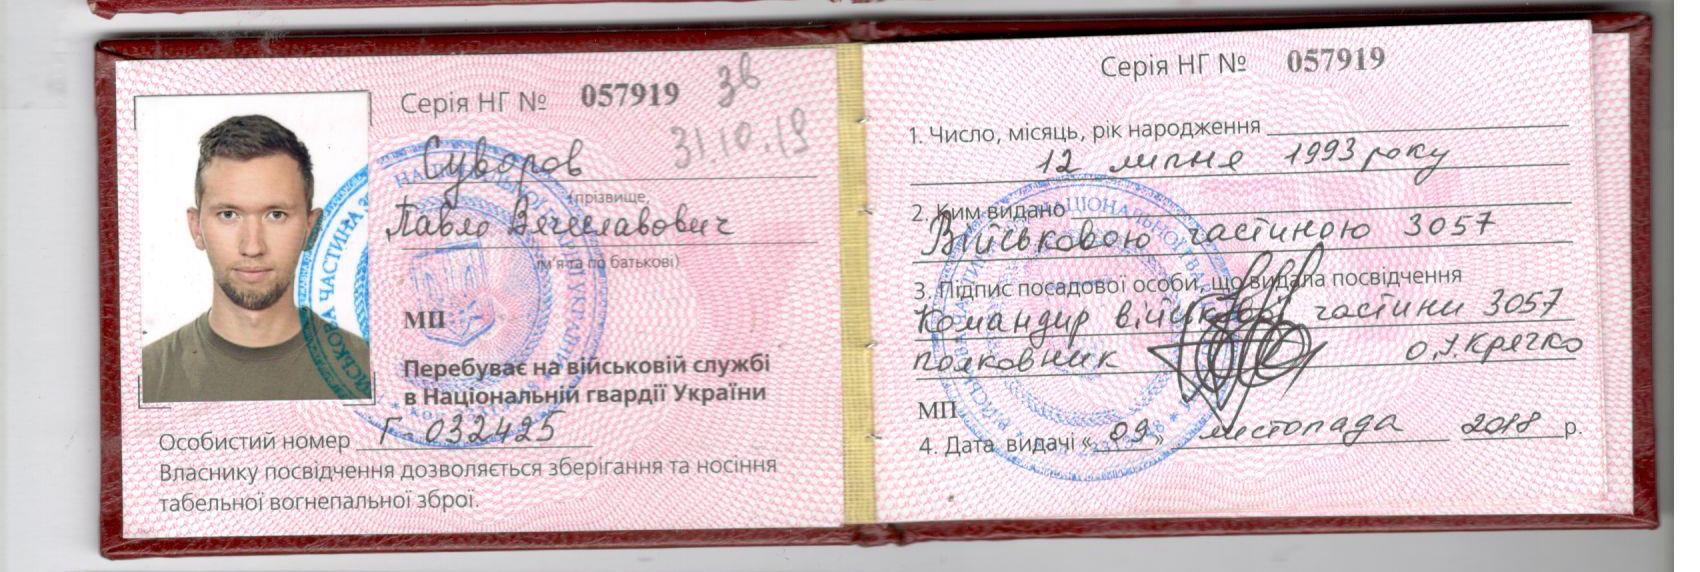 Серія НГ № 057919
зв
31.10.19
Суворов
(прізвище,
Павло Вячеславович
ім'я та по батькові)
МП
Перебуває на військовій службі
в Національній гвардії України
Особистий номер Г-032425
Власнику посвідчення дозволяється зберігання та носіння
табельної вогнепальної зброї.
Серія НГ № 057919
1. Число, місяць, рік народження
12 липня 1993 року
2. Ким видано
Військовою частиною 3057
3. Підпис посадової особи, що видала посвідчення
Командир військової частини 3057
полковник О.І. Кречко
МП
4. Дата видачі « 09 » листопада 2018 р.